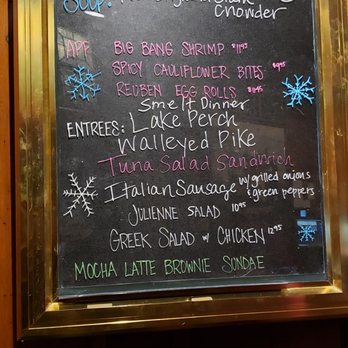 Soup:
Chowder
APP. BIG BANG SHRIMP $11.95
SPICY CAULIFLOWER BITES $9.95
REUBEN EGG ROLLS $8.95
Smelt Dinner
ENTREES: Lake Perch
Walleyed Pike
Tuna Salad Sandwich
Italian Sausage w/ grilled onions
& green peppers
JULIENNE SALAD 10.95
GREEK SALAD w CHICKEN 12.95
MOCHA LATTE BROWNIE SUNDAE